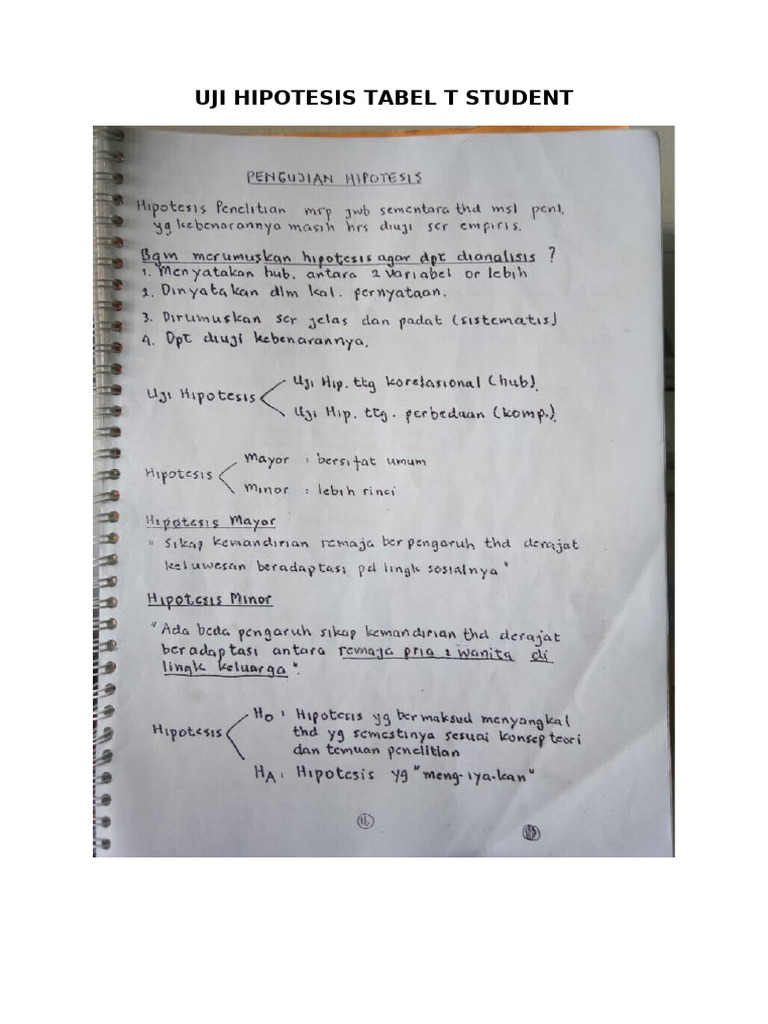 UJI HIPOTESIS TABEL T STUDENT
PENGUJIAN HIPOTESIS
Hipotesis Penelitian mrp jwb sementara thd msl penl.
yg kebenarannya masih hrs diuji scr empiris.
Bgm merumuskan hipotesis agar dpt dianalisis ?
1. Menyatakan hub. antara 2 variabel or lebih
2. Dinyatakan dlm kal. pernyataan.
3. Dirumuskan scr jelas dan padat (sistematis)
4. Dpt diuji kebenarannya.
Uji Hipotesis
Uji Hip. ttg korelasional (hub).
Uji Hip. ttg. perbedaan (komp.).
Hipotesis
Mayor : bersifat umum
Minor : lebih rinci
Hipotesis Mayor
" Sikap kemandirian remaja berpengaruh thd derajat
keluwesan beradaptasi pd lingk sosialnya "
Hipotesis Minor
" Ada beda pengaruh sikap kemandirian thd derajat
beradaptasi antara remaja pria & wanita di
lingk keluarga ".
Hipotesis
Ho : Hipotesis yg bermaksud menyangkal
thd yg semestinya sesuai konsep teori
dan temuan penelitian
HA : Hipotesis yg "meng-iya-kan"
16